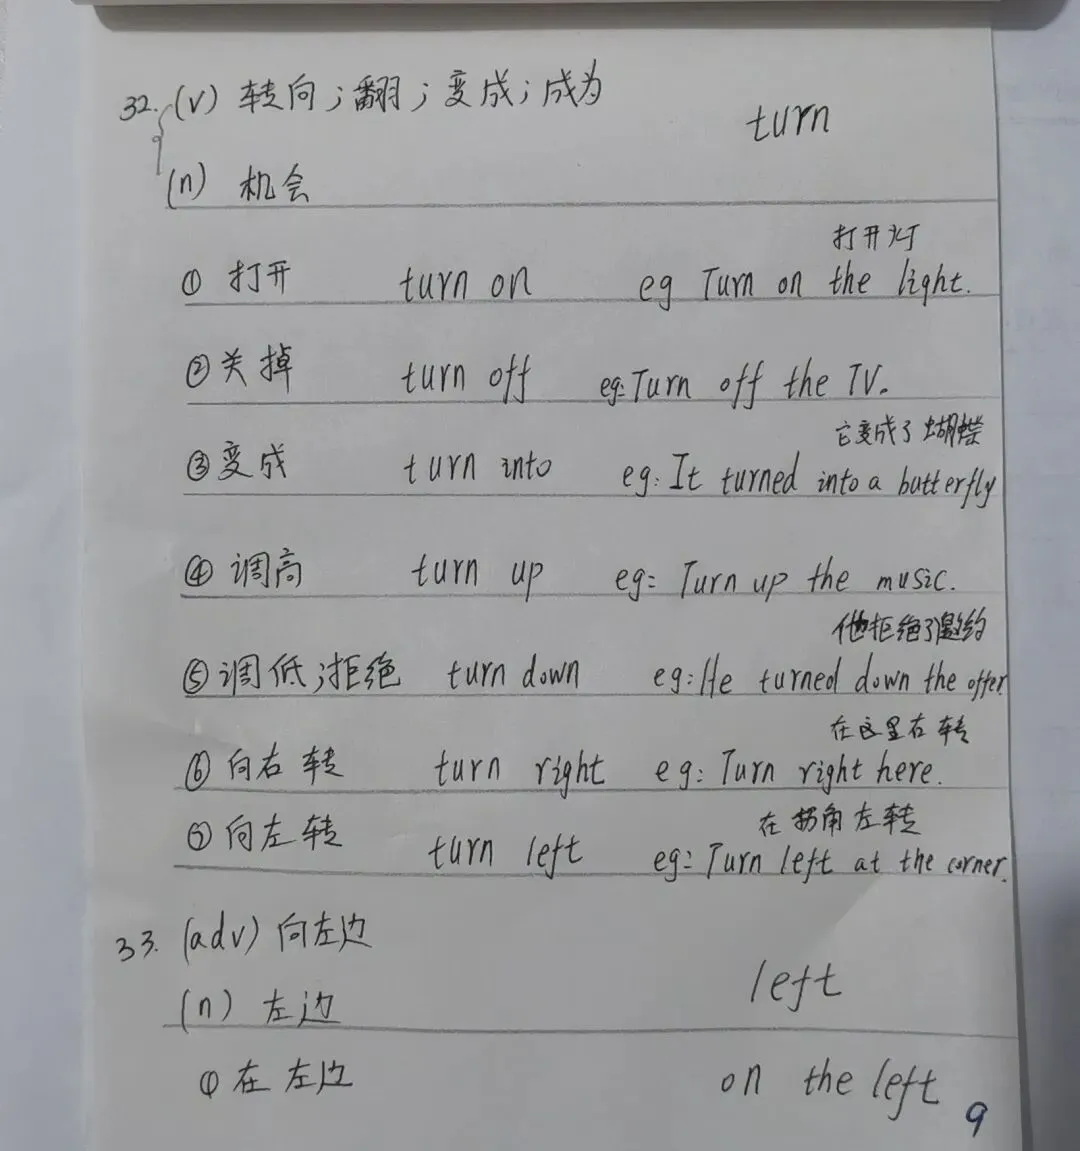 32. (v) 转向；翻；变成；成为
turn
(n) 机会
打开灯
① 打开 turn on eg Turn on the light.
② 关掉 turn off eg: Turn off the TV.
它变成了蝴蝶
③ 变成 turn into eg: It turned into a butterfly
④ 调高 turn up eg: Turn up the music.
他拒绝了邀约
⑤ 调低；拒绝 turn down eg: He turned down the offer
在这里右转
⑥ 向右转 turn right eg: Turn right here.
在拐角左转
⑦ 向左转 turn left eg: Turn left at the corner.
33. (adv) 向左边
left
(n) 左边
① 在左边 on the left
9